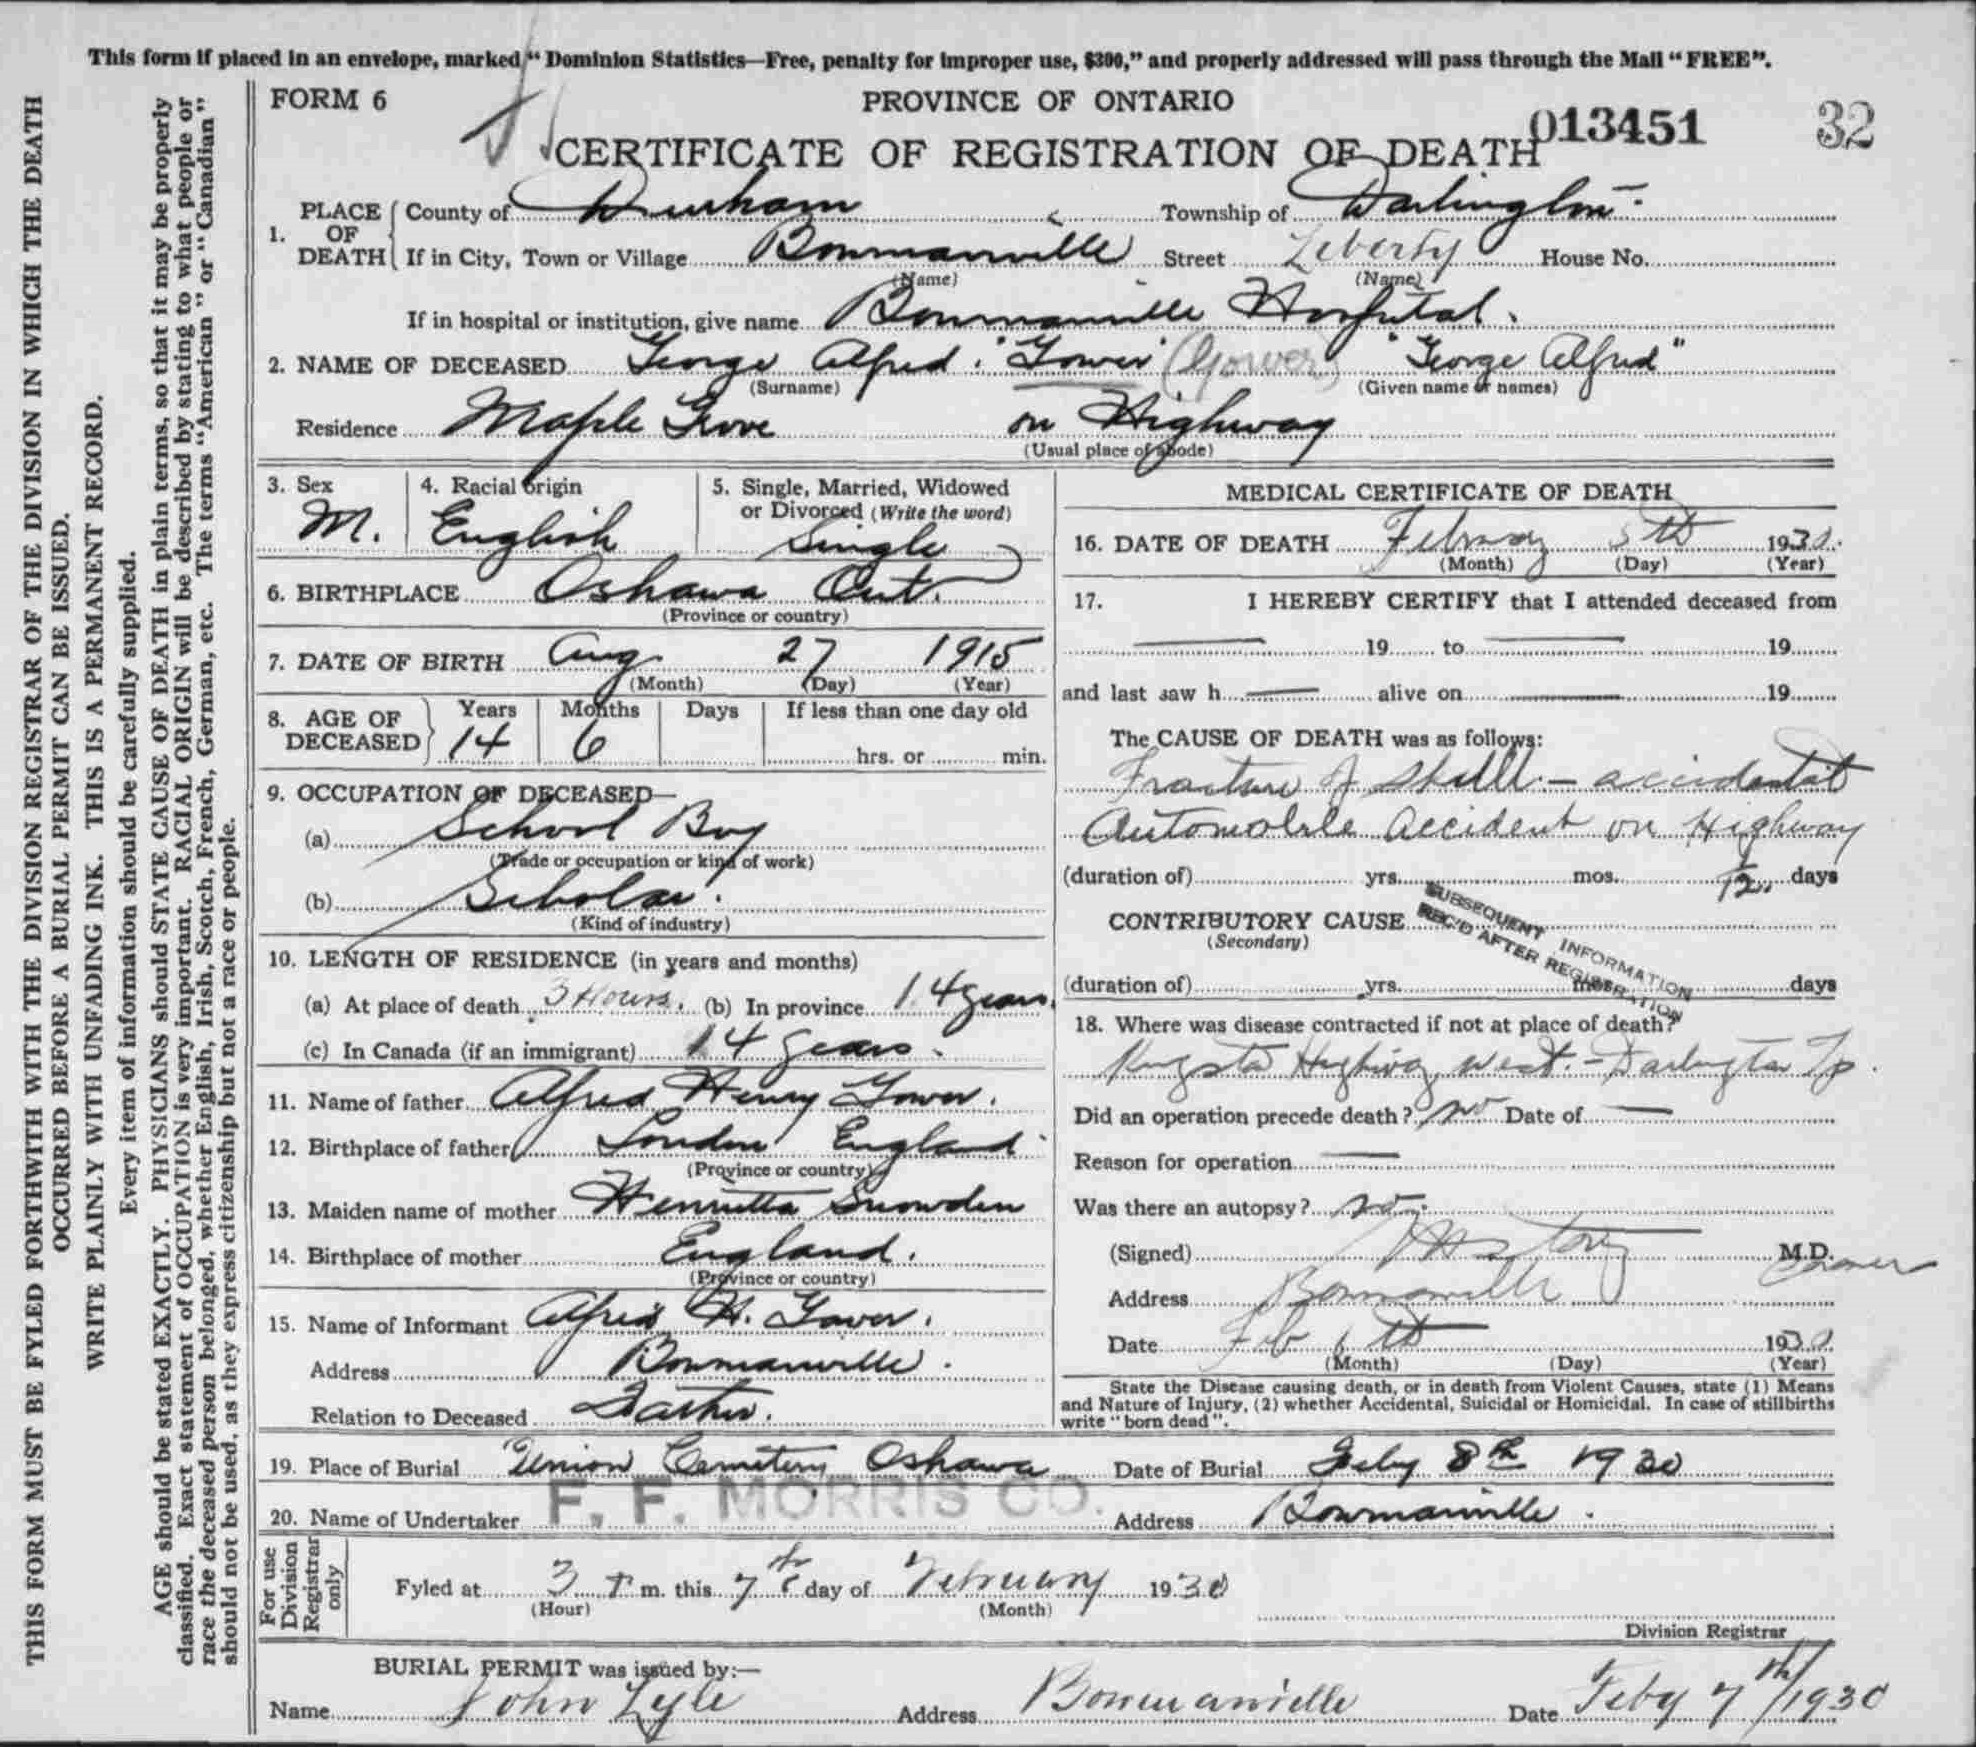 This form if placed in an envelope, marked "Dominion Statistics—Free, penalty for improper use, $300," and properly addressed will pass through the Mail "FREE".
THIS FORM MUST BE FYLED FORTHWITH WITH THE DIVISION REGISTRAR OF THE DIVISION IN WHICH THE DEATH
OCCURRED BEFORE A BURIAL PERMIT CAN BE ISSUED.
WRITE PLAINLY WITH UNFADING INK. THIS IS A PERMANENT RECORD.
Every item of information should be carefully supplied.
AGE should be stated EXACTLY. PHYSICIANS should STATE CAUSE OF DEATH in plain terms, so that it may be properly
classified. Exact statement of OCCUPATION is very important. RACIAL ORIGIN will be described by stating to what people or
race the deceased person belonged, whether English, Irish, Scotch, French, German, etc. The terms "American" or "Canadian"
should not be used, as they express citizenship but not a race or people.
FORM 6
PROVINCE OF ONTARIO
013451 32
CERTIFICATE OF REGISTRATION OF DEATH
1. PLACE OF DEATH County of Durham Township of Darlington
If in City, Town or Village Bowmanville Street Liberty House No.
(Name) (Name)
If in hospital or institution, give name Bowmanville Hospital.
2. NAME OF DECEASED George Alfred "Gower" (Gower) "George Alfred"
(Surname) (Given name or names)
Residence Maple Grove on Highway
(Usual place of abode)
3. Sex M. 4. Racial origin English 5. Single, Married, Widowed or Divorced (Write the word) Single
6. BIRTHPLACE Oshawa Ont.
(Province or country)
7. DATE OF BIRTH Aug 27 1915
(Month) (Day) (Year)
8. AGE OF DECEASED Years 14 Months 6 Days If less than one day old
hrs. or min.
9. OCCUPATION OF DECEASED—
(a) School Boy
(Trade or occupation or kind of work)
(b) Scholar.
(Kind of industry)
10. LENGTH OF RESIDENCE (in years and months)
(a) At place of death 3 Hours. (b) In province 14 years.
(c) In Canada (if an immigrant) 14 years.
11. Name of father Alfred Henry Gower.
12. Birthplace of father London England
(Province or country)
13. Maiden name of mother Henrietta Snowden
14. Birthplace of mother England.
(Province or country)
15. Name of Informant Alfred H. Gower.
Address Bowmanville.
Relation to Deceased Father.
MEDICAL CERTIFICATE OF DEATH
16. DATE OF DEATH February 5th 1930.
(Month) (Day) (Year)
17. I HEREBY CERTIFY that I attended deceased from
— 19 to — 19
and last saw h — alive on — 19
The CAUSE OF DEATH was as follows:
Fracture of Skull - accidental
Automobile accident on Highway
(duration of) yrs. mos. 1/2 days
CONTRIBUTORY CAUSE
(Secondary)
SUBSEQUENT INFORMATION
REC'D AFTER REGISTRATION
(duration of) yrs. mos. days
18. Where was disease contracted if not at place of death?
Kingston Highway West. - Darlington Tp.
Did an operation precede death? no Date of —
Reason for operation —
Was there an autopsy? no.
(Signed) M.D.
Coroner
Address Bowmanville
Date Feb 6th 1930
(Month) (Day) (Year)
State the Disease causing death, or in death from Violent Causes, state (1) Means
and Nature of Injury, (2) whether Accidental, Suicidal or Homicidal. In case of stillbirths
write "born dead".
19. Place of Burial Union Cemetery Oshawa Date of Burial Feby 8th 1930
20. Name of Undertaker F. F. MORRIS CO. Address Bowmanville.
For use Division Registrar only
Fyled at 3 P m. this 7th day of February 1930
(Hour) (Month)
Division Registrar
BURIAL PERMIT was issued by:—
Name John Lyle Address Bowmanville Date Feby 7th/1930